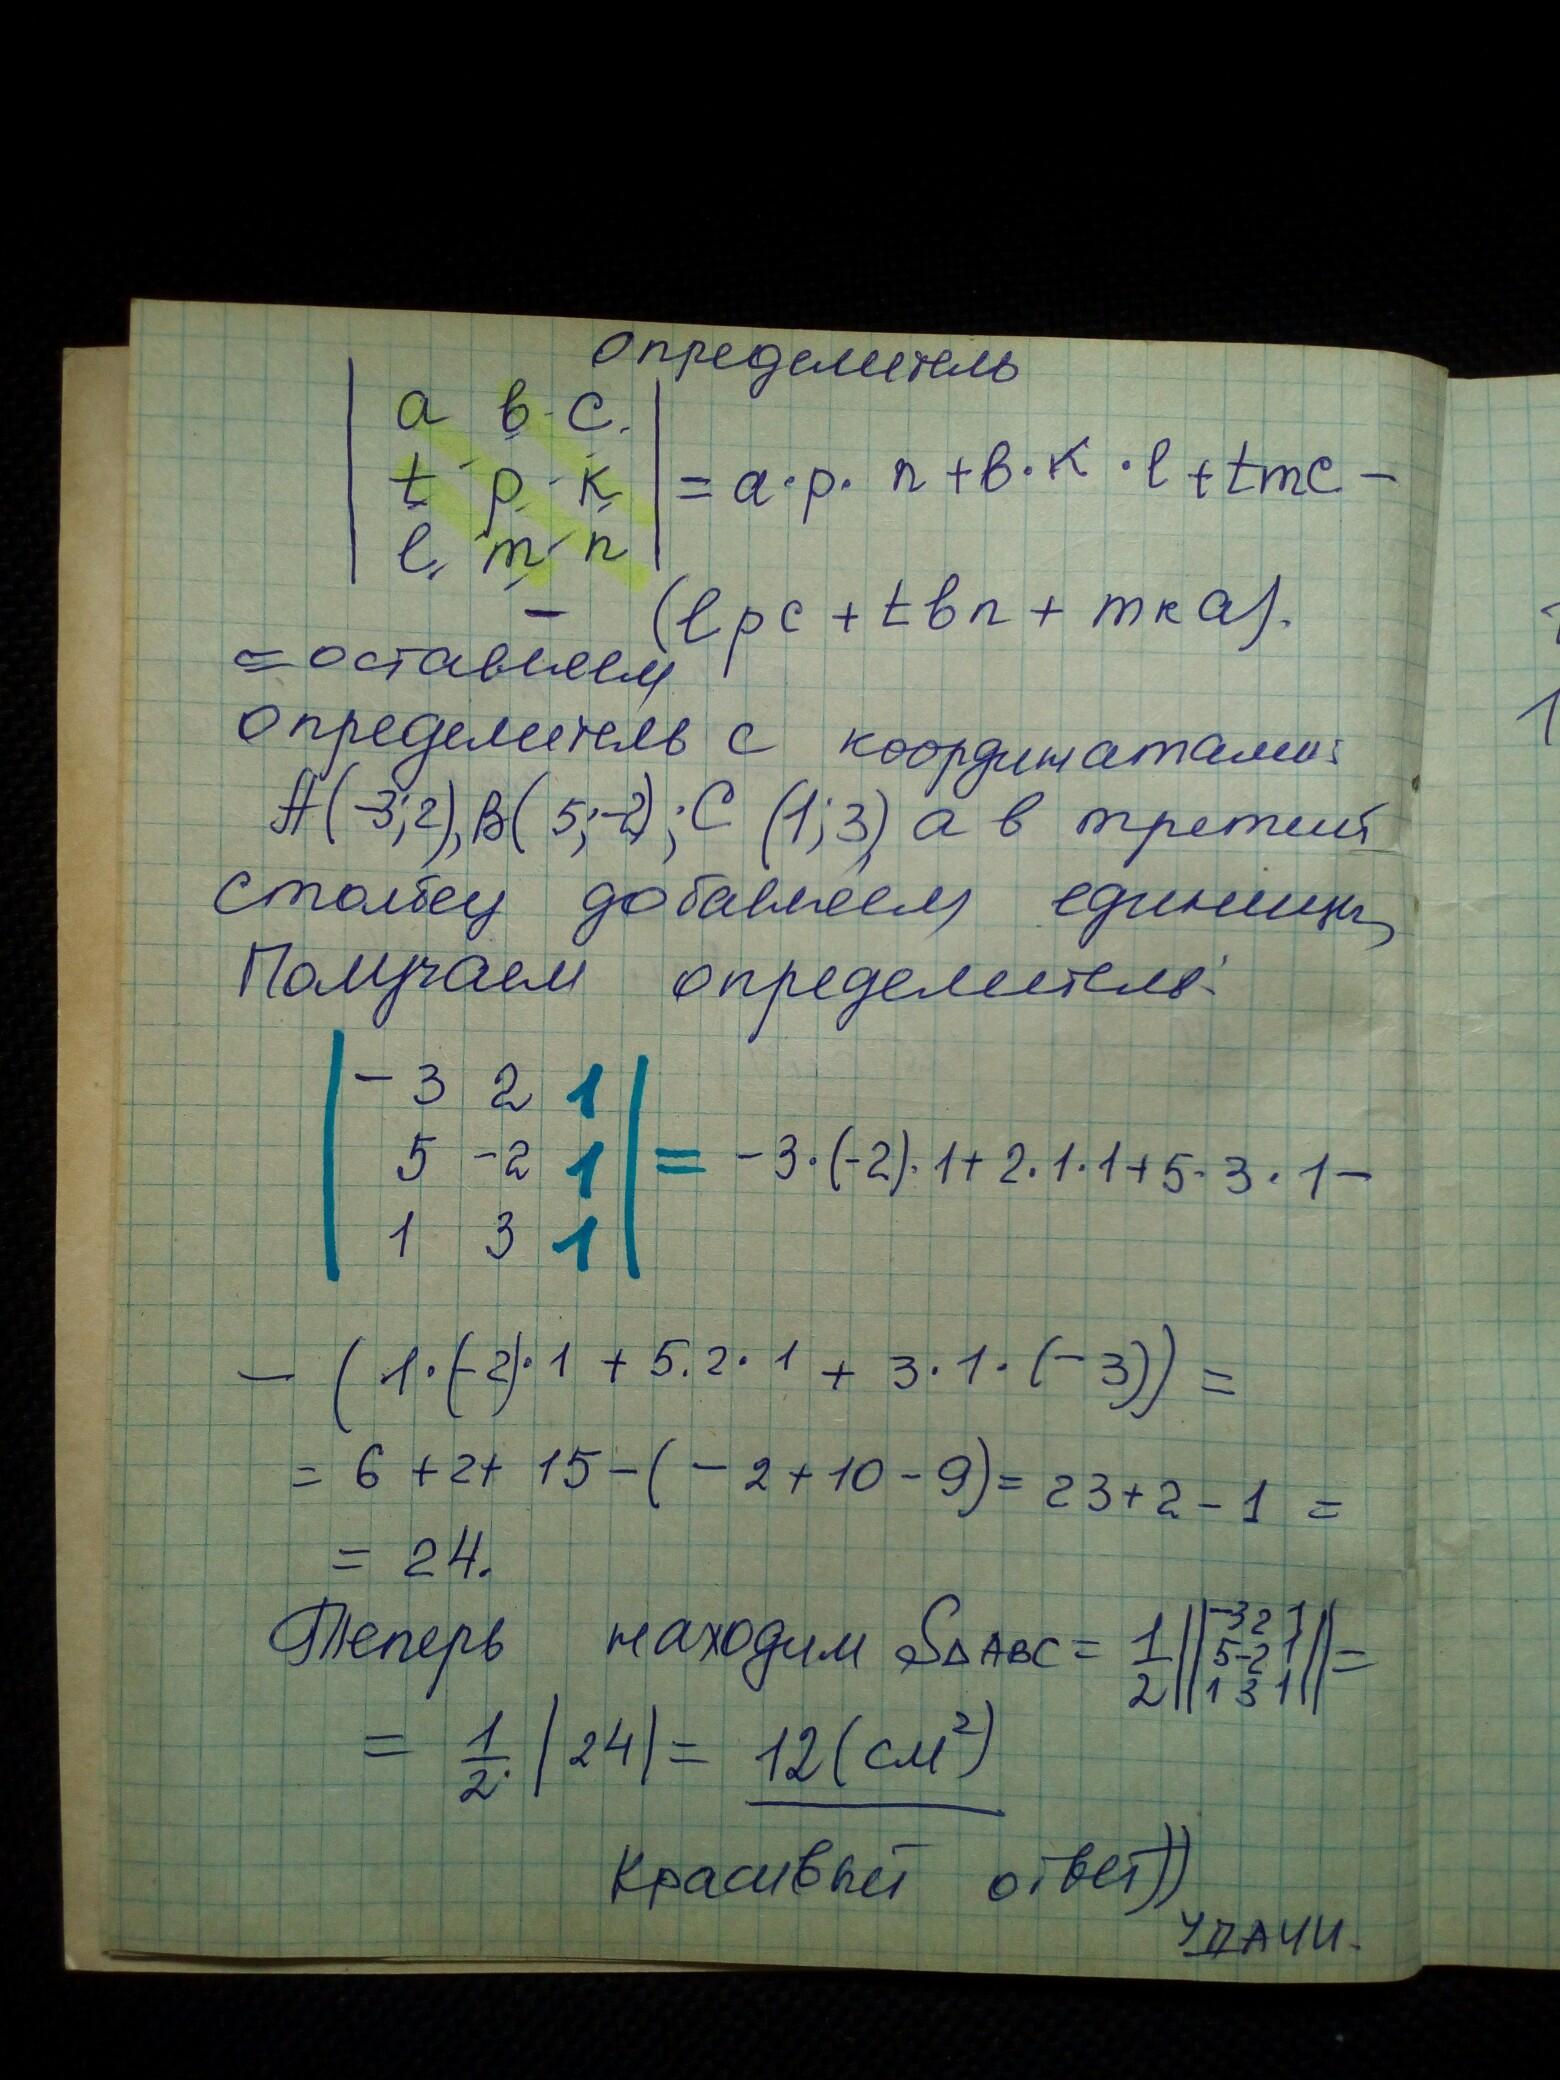 определитель
| a в c |
| t p к | = a·p·n+в·к·l+tmc –
| l m n |
– (lpc + tвn + mкa).
= оставляем
определитель с координатами:
A(-3;2), B(5;-2); C (1;3) а в третий
столбец добавляем единицы,
Получаем определитель:
| -3 2 1 |
| 5 -2 1 | = -3·(-2)·1+2·1·1+5·3·1 –
| 1 3 1 |
– (1·(-2)·1 + 5·2·1 + 3·1·(-3)) =
= 6 +2+ 15 – (-2+10-9) = 23+2-1 =
= 24.
Теперь находим S∆ABC = 1/2 || -3 2 1 5 -2 1 1 3 1 || =
= 1/2·|24| = 12(см²)
Красивый ответ))
УДАЧИ.
1
1